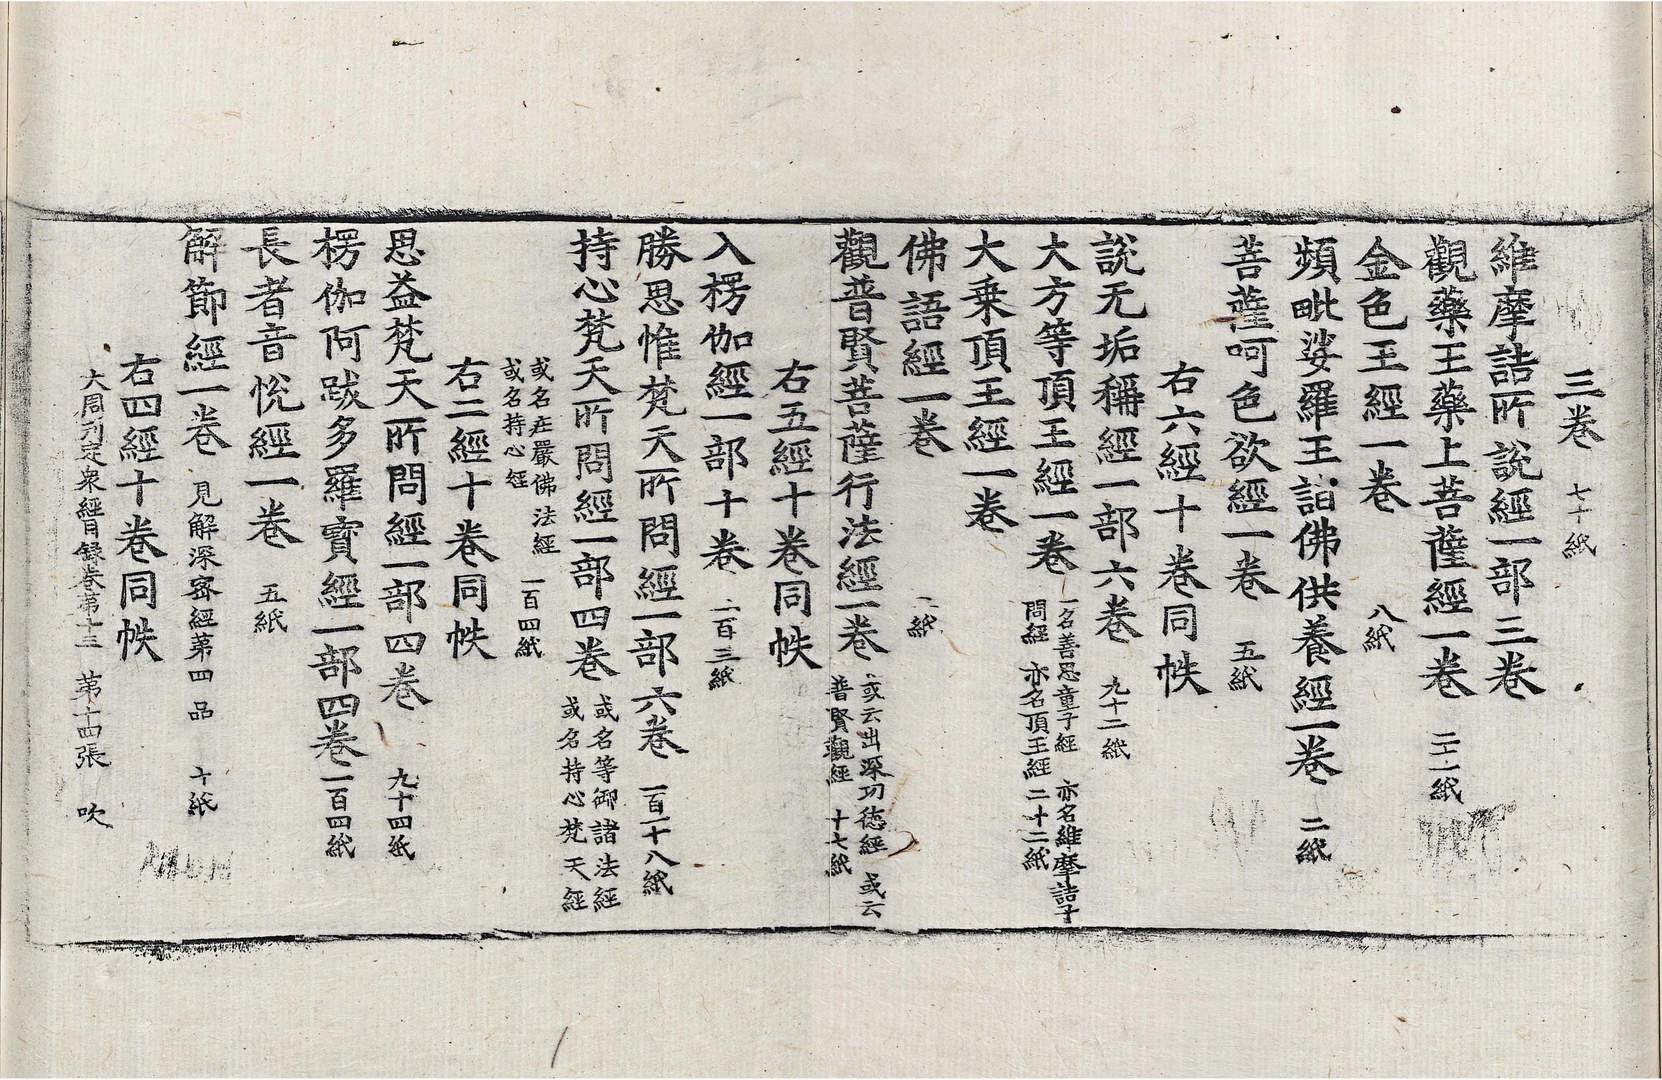 三卷 七十紙
維摩詰所說經一部三卷
觀藥王藥上菩薩經一卷 二十一紙
金色王經一卷 八紙
頻毗娑羅王詣佛供養經一卷 二紙
菩薩呵色欲經一卷 五紙
右六經十卷同帙
說无垢稱經一部六卷 九十二紙
大方等頂王經一卷 一名善思童子經 亦名維摩詰子
問經 亦名頂王經 二十二紙
大乗頂王經一卷
佛語經一卷 二紙
觀普賢菩薩行法經一卷 或云出深功德經 或云
普賢觀經 十七紙
右五經十卷同帙
入楞伽經一部十卷 二百三紙
勝思惟梵天所問經一部六卷 一百二十八紙
持心梵天所問經一部四卷 或名等御諸法經
或名持心梵天經
或名庄嚴佛法經
或名持心經 一百四紙
右二經十卷同帙
思益梵天所問經一部四卷 九十四紙
楞伽阿跋多羅寶經一部四卷 一百四紙
長者音悅經一卷 五紙
解節經一卷 見解深密經第四品 十紙
右四經十卷同帙
大周刊定衆經目錄卷第十三 第十四張 吹